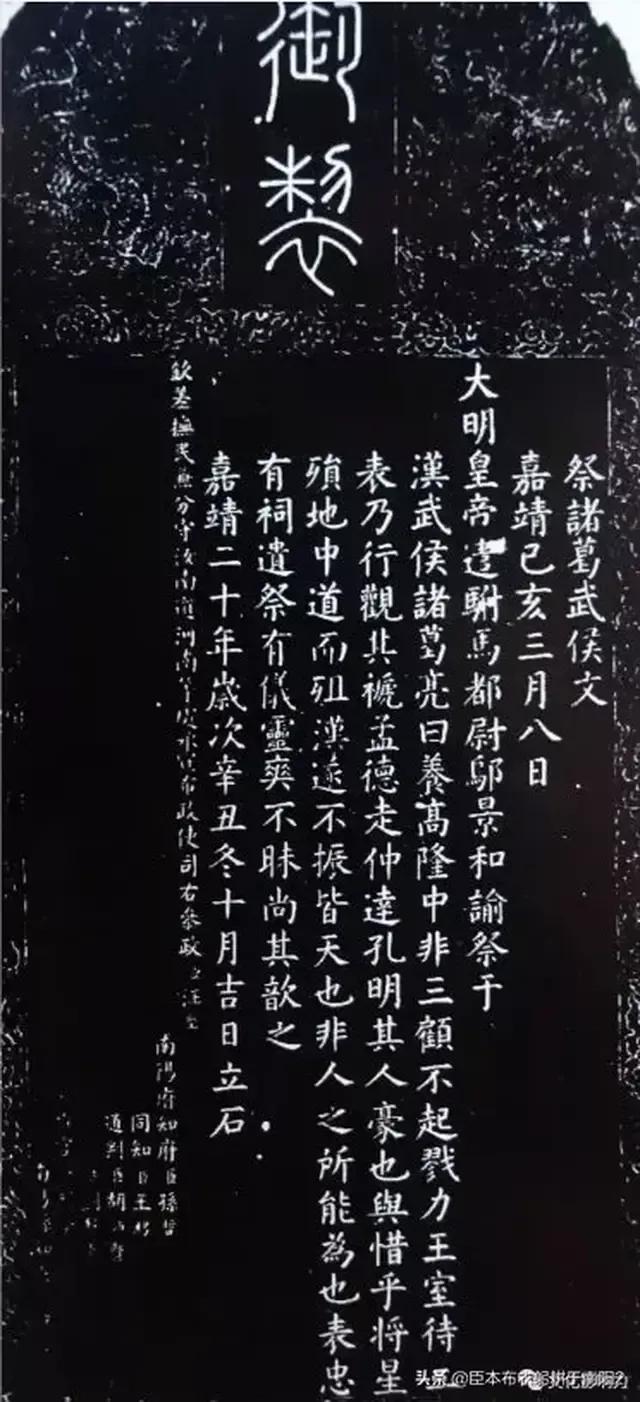 御製
祭諸葛武侯文
嘉靖己亥三月八日
大明皇帝遣駙馬都尉鄔景和諭祭于
漢武侯諸葛亮曰養高隆中非三顧不起戮力王室待二
表乃行觀其褫孟德走仲達孔明其人豪也與惜乎将星
殞地中道而殂漢遂不振皆天也非人之所能為也表忠
有祠遺祭有儀靈爽不昧尚其歆之
嘉靖二十年歲次辛丑冬十月吉日立石
欽差撫民兼分守汝南道河南等處承宣布政使司右叅政臣汪
南陽府知府臣孫哲
同知臣王
通判臣胡
头条@臣本布衣躬耕于南阳2
文化影响力